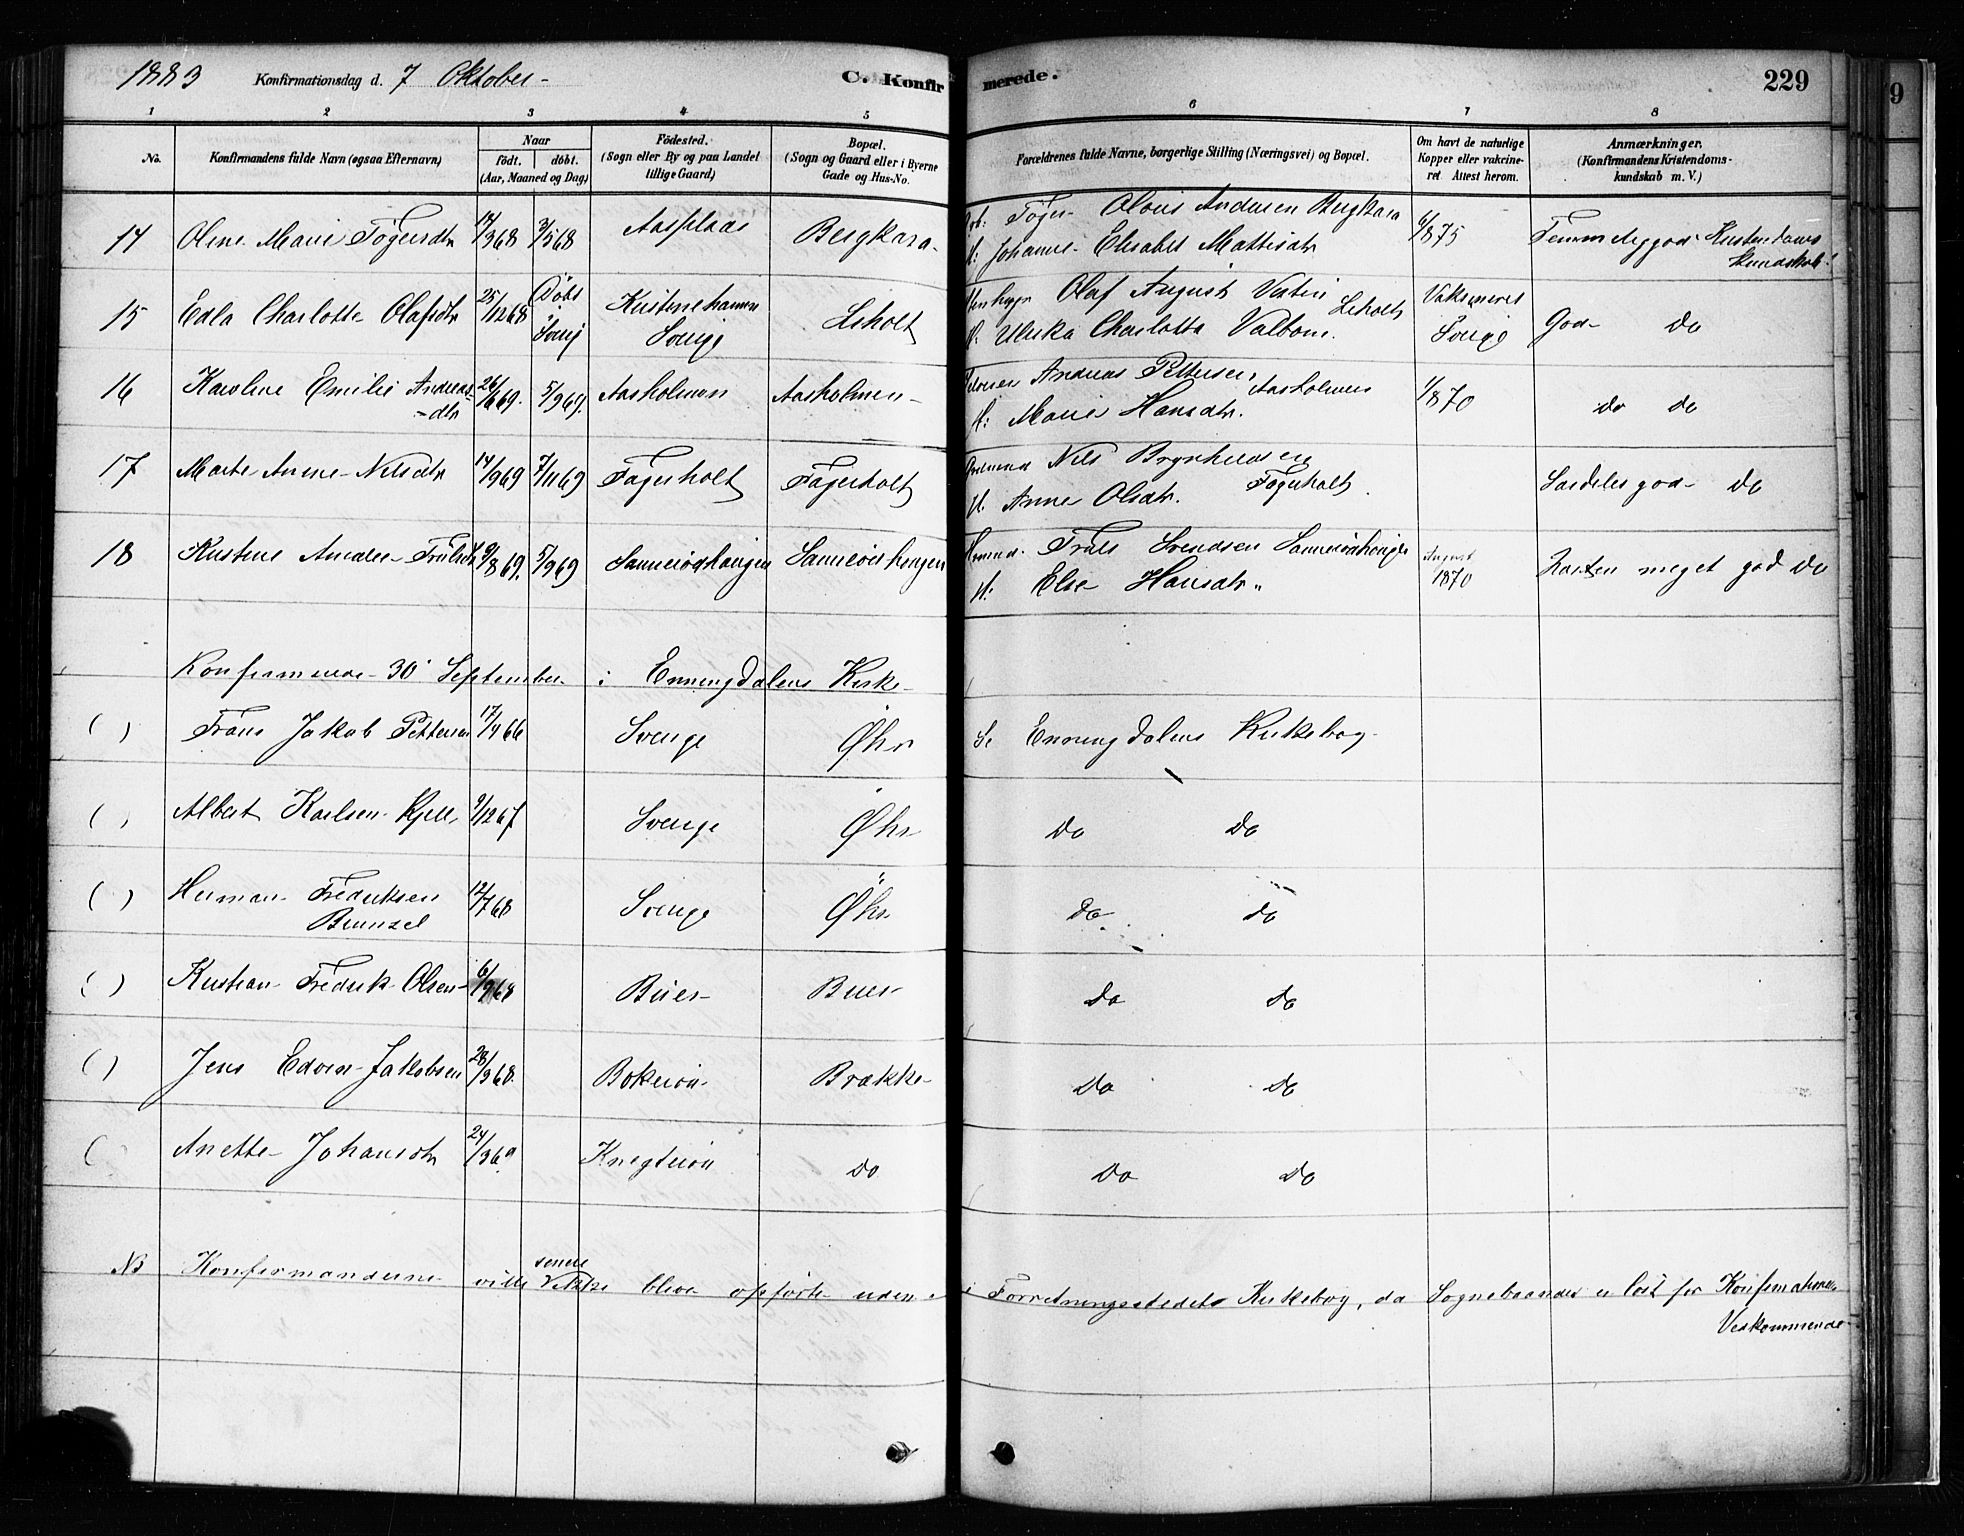 1883 Konfirmationsdag d. 7 Oktober - C. Konfirmerede. 229
1 2 3 4 5 6 7 8
No. Konfirmandens fulde Navn (ogsaa Efternavn) Naar født. døbt. (Aar, Maaned og Dag) Födested. (Sogn eller By og paa Landet tillige Gaard) Bopæl. (Sogn og Gaard eller i Byerne Gade og Hus-No. Forældrenes fulde Navne, borgerlige Stilling (Næringsvei) og Bopæl. Om havt de naturlige Kopper eller vakcineret Attest herom. Anmærkninger. (Konfirmandens Kristendomskundskab m. V.)
14 Oline Marie Tøgersdtr 3/5 68 Aasplads Bergkasa Tøger Olaus Andersen Bergkasa 6/8 75 Temmelig god Kristendoms
H: Johanne Elisabet Mattisdtr kundskab.
15 Edla Charlotte Olafsdtr 25/12 68 Døbt Sverig Kristinehamn Sverige Liholt Olaf August Liholt Vaksineret Sverige God do
H. Ulrika Charlotta Valbom.
16 Karoline Emilie Andreas-dtr 26/6 69. 5/9 69. Aasholmen Aasholmen Andreas Pettersen Aasholmen 1/8 70 do do
H: Marie Hansdtr.
17 Marte Anne Nilsdtr 14/9 69 7/11 69 Fagerholt Fagerholt Nils Brynhildsen Fagerholt Særdeles god do
H. Anne Olsdtr.
18 Kristine Amalie Trulsdtr 9/8 69. 5/9 69 Sannerødhaugen Sannerødhaugen Truls Svendsen Sannerødhaugen August 1870 Næsten meget god do
H: Else Hansdtr.
Konfirmerede 30 September i Enningdalens Kirke
( ) Frans Jakob Pettersen 17/4 66 Sverige Øhr Se Enningdalens Kirkebog.
( ) Albert Karlsen Kjell 9/12 67 Sverige Øhr do do
( ) Herman Fredriksen 12/7 68 Sverige Øhr do do
( ) Kristian Fredrik Olsen 6/9 68 Buer Buer do do
( ) Jens Edvin Jakobsen 28/9 68. Bokerød Brække do do
( ) Anette Johansdtr 24/3 69 Knegterød do do do
NB Konfirmanderne ville senere ikke blive opførte uden i Forretningsstedets Kirkebog, da Sognebaandet er løst for Konfirmationens
Vedkommende